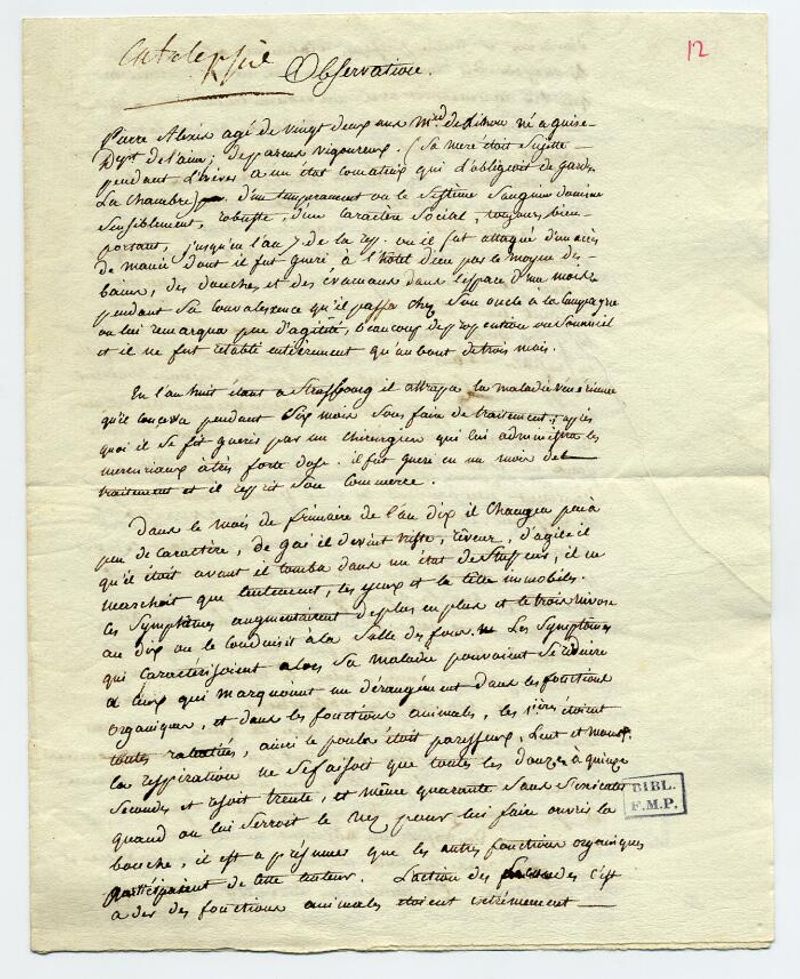 Catalepsie
12
Observation.
Pierre Alexis agé de vingt deux ans Md. de né a guise
Depnt de l'aine; de parens vigoureux. (Sa mere étoit Sujette
pendant a un état comateux qui l'obligeoit de garder
La Chambre) d'un temperament ou le Sistême Sanguin domine
Sensiblement, robuste, d'un Caractère Social, toujours bien
portant, jusqu'en l'an 7. de la rep. ou il fut attaqué d'un accès
de manie dont il fut gueri à l'hôtel dieu par le moyen des
bains, des douches et des évacuans dans l'espace d'un mois
pendant Sa Convalescence qu'il passa chez Son oncle à la Campagne
on lui remarqua peu d'agilité, beaucoup de propention au Sommeil
et il ne fut rétabli entièrement qu'au bout de trois mois.
En l'an huit étant a Strasbourg il attrapa la maladie vénérienne
qu'il conserva pendant Six mois Sans faire de traitement; après
quoi il Se fit guerir par un chirurgien qui lui administra les
mercuriaux à très forte dose. il fut gueri en un mois de
traitement et il reprit Son Commerce.
Dans le mois de frimaire de l'an dix il Changea peu à
peu de Caractère, de gai il devint triste, rêveur, d'agile
qu'il était avant il tomba dans un état de Stupeur, il ne
marchoit que lentement, les yeux et la tête immobiles.
les Symptômes augmentaient de plus en plus et le trois nivose
an dix on le conduisit à la Salle des foux. Les Symptômes
qui Caractérisoient alors Sa maladie pouvaient Se réduire
a Ceux qui marquoient un dérangement dans les fonctions
organiques, et dans les fonctions animales, les 1ières étoient
toutes ralenties, ainsi le pouls était paresseux, Lent et mou.
la respiration ne Se faisoit que toutes les douze à quinze
Secondes et trente, et même quarante Sans S'exécuter
quand on lui Serroit le nez pour lui faire ouvrir la
bouche, il est a présumer que les autres fonctions organiques
participaient de Cette lenteur. L'action des Secondes C'est
a dire des fonctions animales étoient extrêmement
BIBL.
F.M.P.